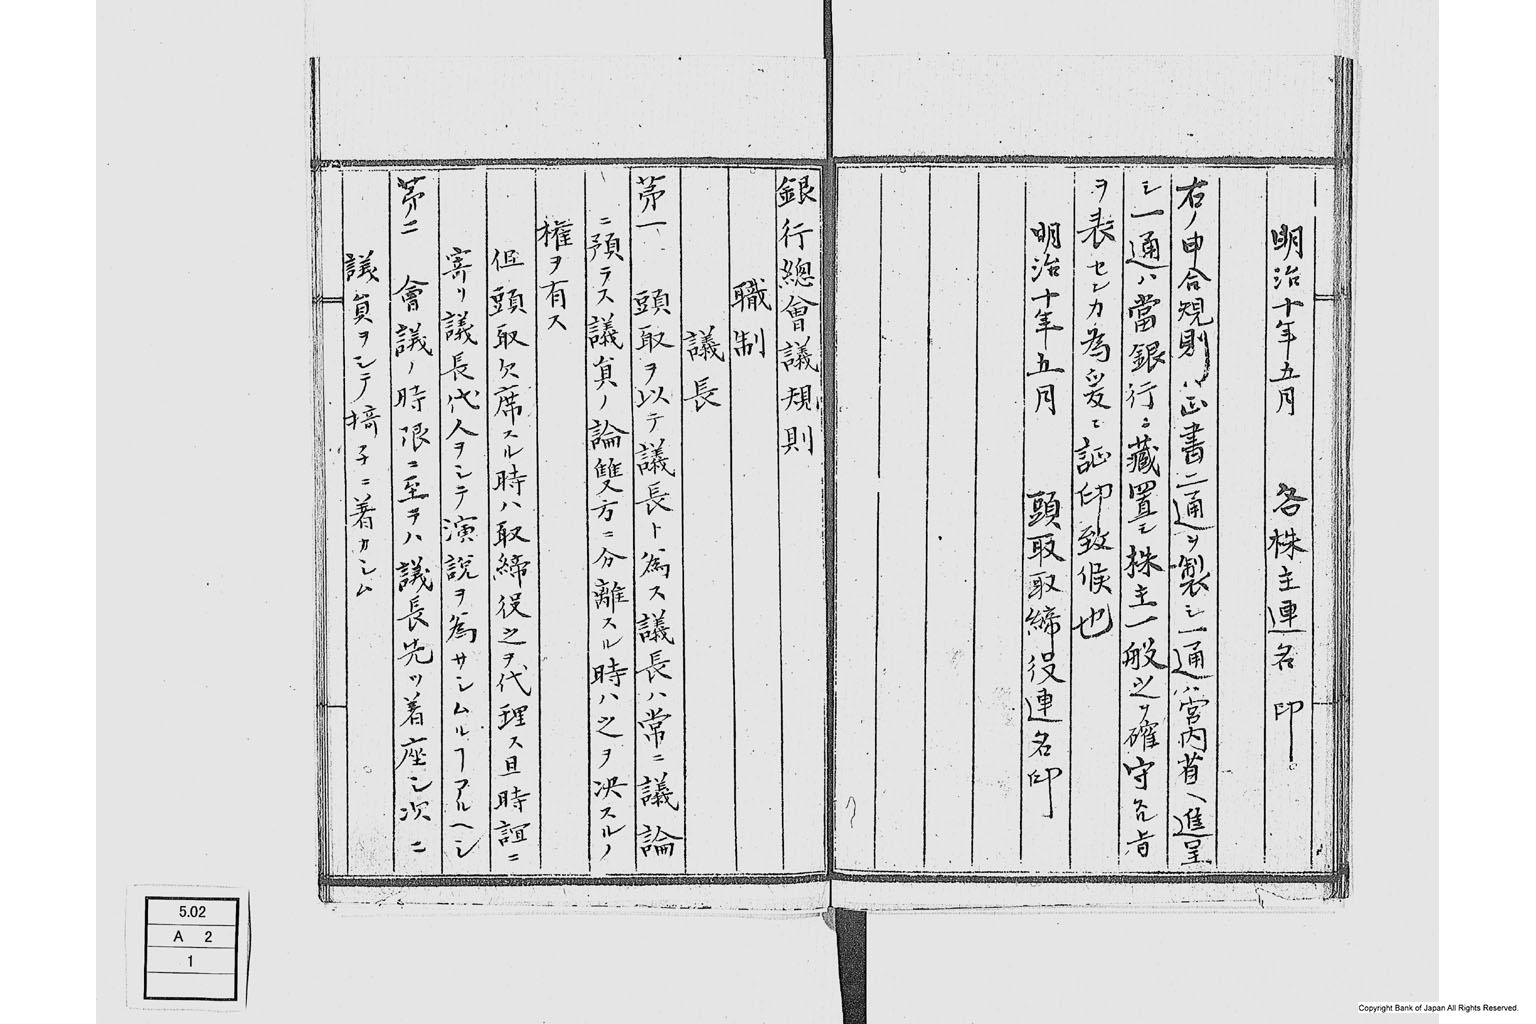 明治十年五月　各株主連名印
右ノ申合規則ハ正書二通ヲ製シ一通ハ宮内省ヘ進呈
シ一通ハ當銀行ニ藏置シ株主一般之ヲ確守スル旨
ヲ表センカ為メ爰ニ証印致候也
明治十年五月　頭取取締役連名印
銀行總會議規則
職制
議長
第一　頭取ヲ以テ議長ト為ス議長ハ常ニ議論
ニ預ラス議員ノ論雙方ニ分離スル時ハ之ヲ決スルノ
權ヲ有ス
但頭取欠席スル時ハ取締役之ヲ代理ス且時誼ニ
寄リ議長代人ヲシテ演説ヲ為サシムルヿアルヘシ
第二　會議ノ時限ニ至ラハ議長先ツ着座シ次ニ
議員ヲシテ椅子ニ着カシム
5.02
A 2
1
Copyright Bank of Japan All Rights Reserved.